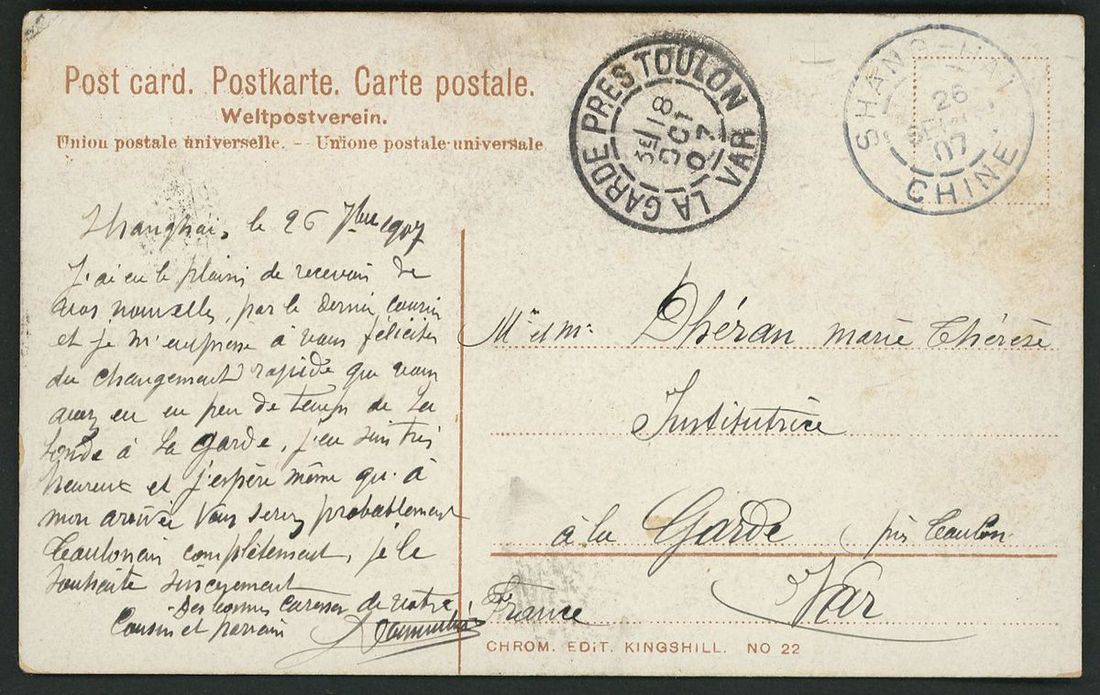 Post card. Postkarte. Carte postale.
Weltpostverein.
Union postale universelle. - Unione postale universale
LA GARDE PRES TOULON VAR
18
OCT
07
SHANG-HAI CHINE
26
07
Shanghai, le 26 7bre 1907
J'ai eu le plaisir de recevoir de
vos nouvelles, par le dernier courrier
et je m'empresse à vous féliciter
du changement rapide que vous
avez eu en peu de temps de La
Londe à La Garde, j'en suis très
heureux et j'espère même qu'à
mon arrivée vous serez probablement
Toulonais complètement, je le
souhaite sincèrement
Des bonnes caresses de votre
Cousin et parrain
Dhéran marie Thérèse
Institutrice
à la Garde près Toulon
Var
France
CHROM. EDIT. KINGSHILL. NO 22